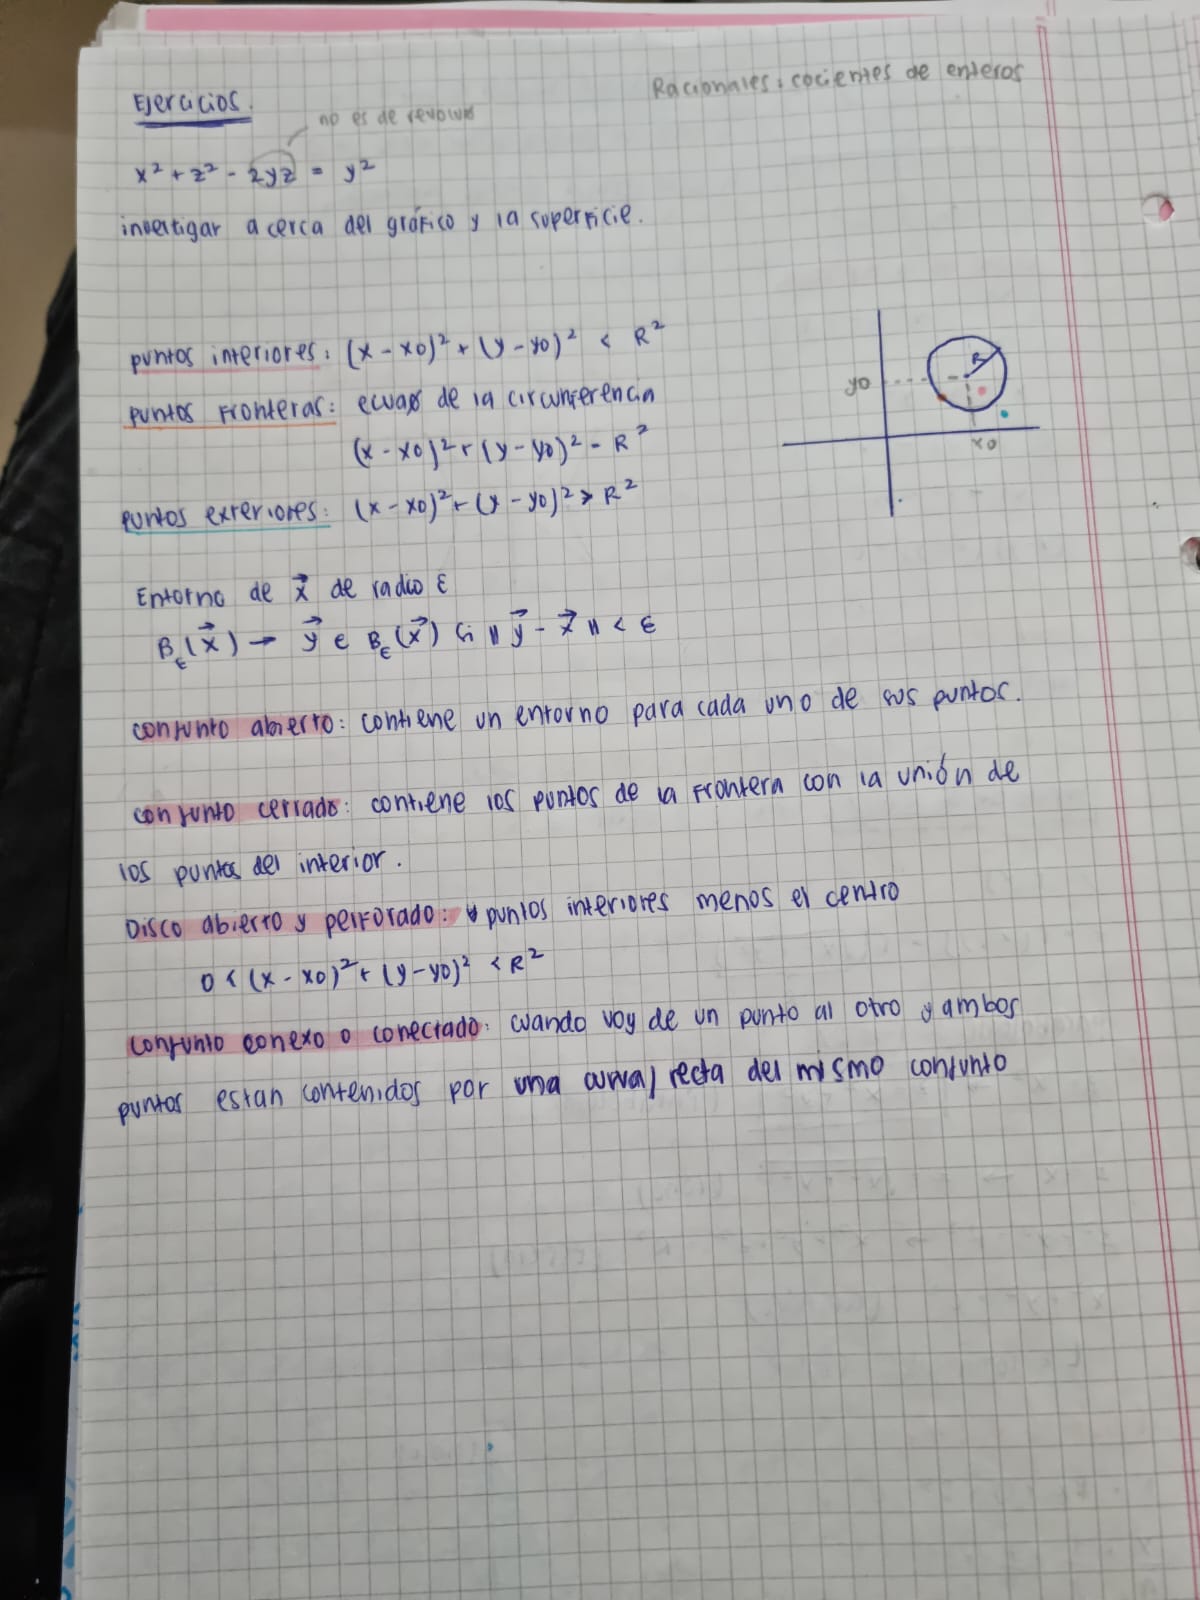 Racionales: cocientes de enteros
Ejercicios.
no es de revoluc
x² + z² - 2yz = y²
investigar a cerca del gráfico y la superficie.
puntos interiores: (x - x0)² + (y - y0)² < R²
puntos Fronteras: ecuac de la circunferencia
(x - x0)² + (y - y0)² = R²
puntos exteriores: (x - x0)² + (y - y0)² > R²
R
y0
x0
Entorno de x⃗ de radio ε
Bε(x⃗) → y⃗ ∈ Bε(x⃗) si || y⃗ - x⃗ || < ε
conjunto abierto: contiene un entorno para cada uno de sus puntos.
conjunto cerrado: contiene los puntos de la frontera con la unión de
los puntos del interior.
Disco abierto y perforado: puntos interiores menos el centro
0 < (x - x0)² + (y - y0)² < R²
conjunto conexo o conectado: cuando voy de un punto al otro y ambos
puntos estan contenidos por una curva/recta del mismo conjunto